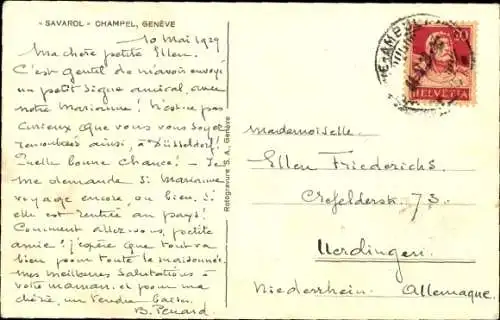 - SAVAROL - CHAMPEL, GENÈVE
10 Mai 1929
Ma chère petite Ellen.
C'est gentil de m'avoir envoyé
un petit signe amical, avec
notre Marianne! N'est-ce pas
curieux que vous vous soyez
rencontrées ainsi, à Düsseldorf!
Quelle bonne chance! - Je
me demande si Marianne
voyage encore, ou bien si
elle est rentrée au pays!
Comment allez-vous, petite
amie? J'espère que tout va
bien pour toute la maisonnée.
Mes meilleures salutations à
votre maman, et pour ma
chérie, un tendre baiser
B. Penard
Rotogravure S. A., Genève
20
HELVETIA
Mademoiselle.
Ellen Friederichs.
Crefelderstr. 73.
Uerdingen.
Niederrhein. Allemagne.